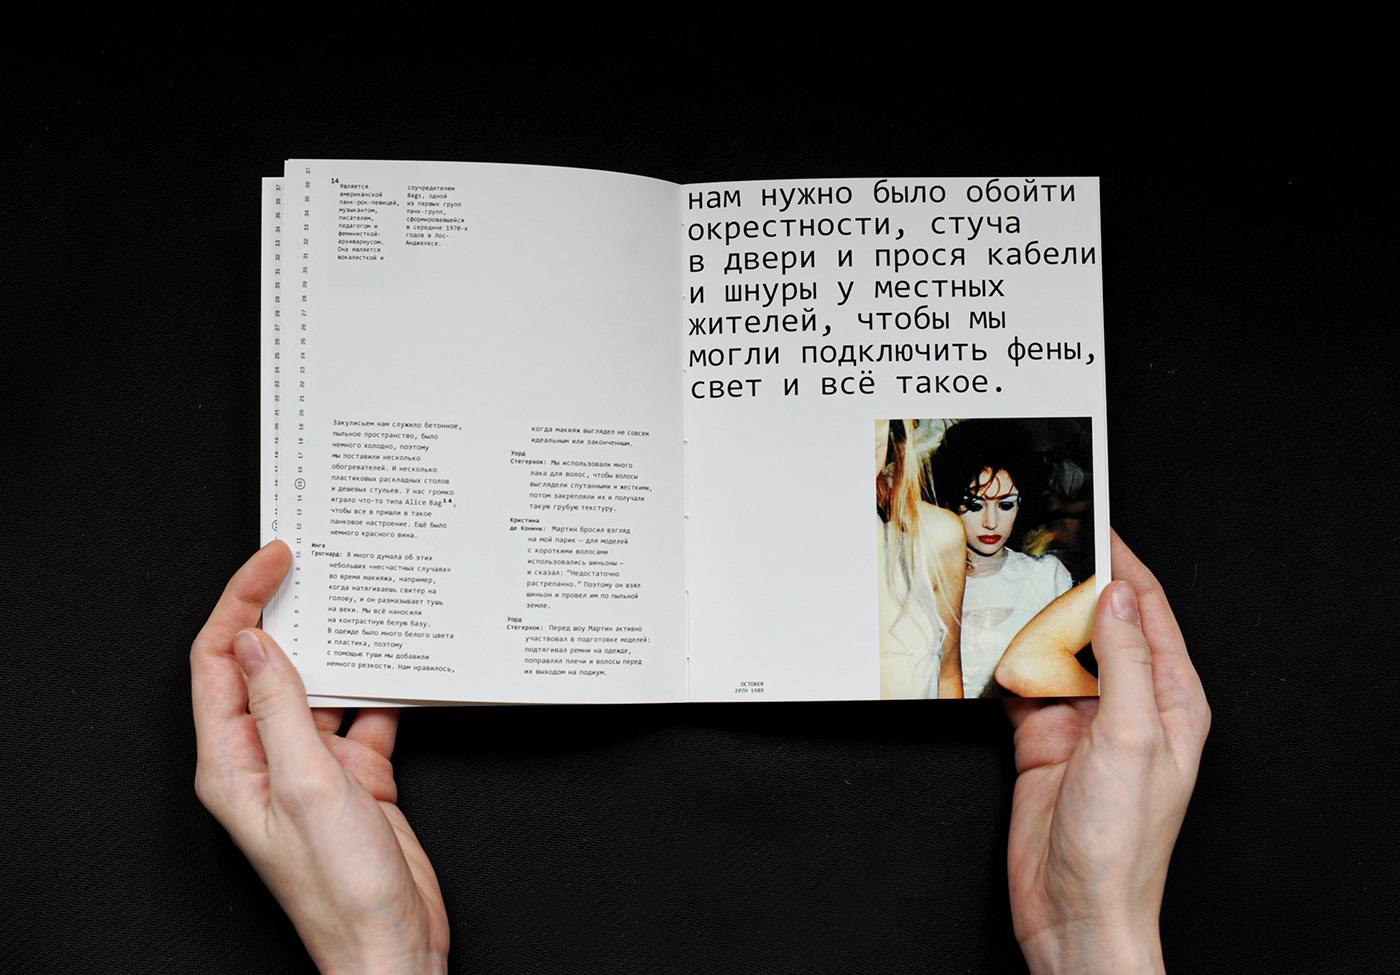 14
Является
американской
панк-рок-певицей,
музыкантом,
писателем,
педагогом и
феминисткой-
архивариусом.
Она является
вокалисткой и
соучредителем
Bags, одной
из первых групп
панк-групп,
сформировавшейся
в середине 1970-х
годов в Лос-
Анджелесе.
Закулисьем нам служило бетонное,
пыльное пространство, было
немного холодно, поэтому
мы поставили несколько
обогревателей. И несколько
пластиковых раскладных столов
и дешевых стульев. У нас громко
играло что-то типа Alice Bag¹⁴,
чтобы все в пришли в такое
панковое настроение. Ещё было
немного красного вина.
Инге
Грогнард: Я много думала об этих
небольших «несчастных случаях»
во время макияжа, например,
когда натягиваешь свитер на
голову, и он размазывает тушь
на веки. Мы всё наносили
на контрастную белую базу.
В одежде было много белого цвета
и пластика, поэтому
с помощью туши мы добавили
немного резкости. Нам нравилось,
когда макияж выглядел не совсем
идеальным или законченным.
Уорд
Стегерхок: Мы использовали много
лака для волос, чтобы волосы
выглядели спутанными и жесткими,
потом закрепляли их и получали
такую грубую текстуру.
Кристина
де Конинк: Мартин бросил взгляд
на мой парик – для моделей
с короткими волосами
использовались шиньоны –
и сказал: "Недостаточно
растрепанно." Поэтому он взял
шиньон и провел им по пыльной
земле.
Уорд
Стегерхок: Перед шоу Мартин активно
участвовал в подготовке моделей:
подтягивал ремни на одежде,
поправлял плечи и волосы перед
их выходом на подиум.
нам нужно было обойти
окрестности, стуча
в двери и прося кабели
и шнуры у местных
жителей, чтобы мы
могли подключить фены,
свет и всё такое.
OCTOBER
19TH 1989